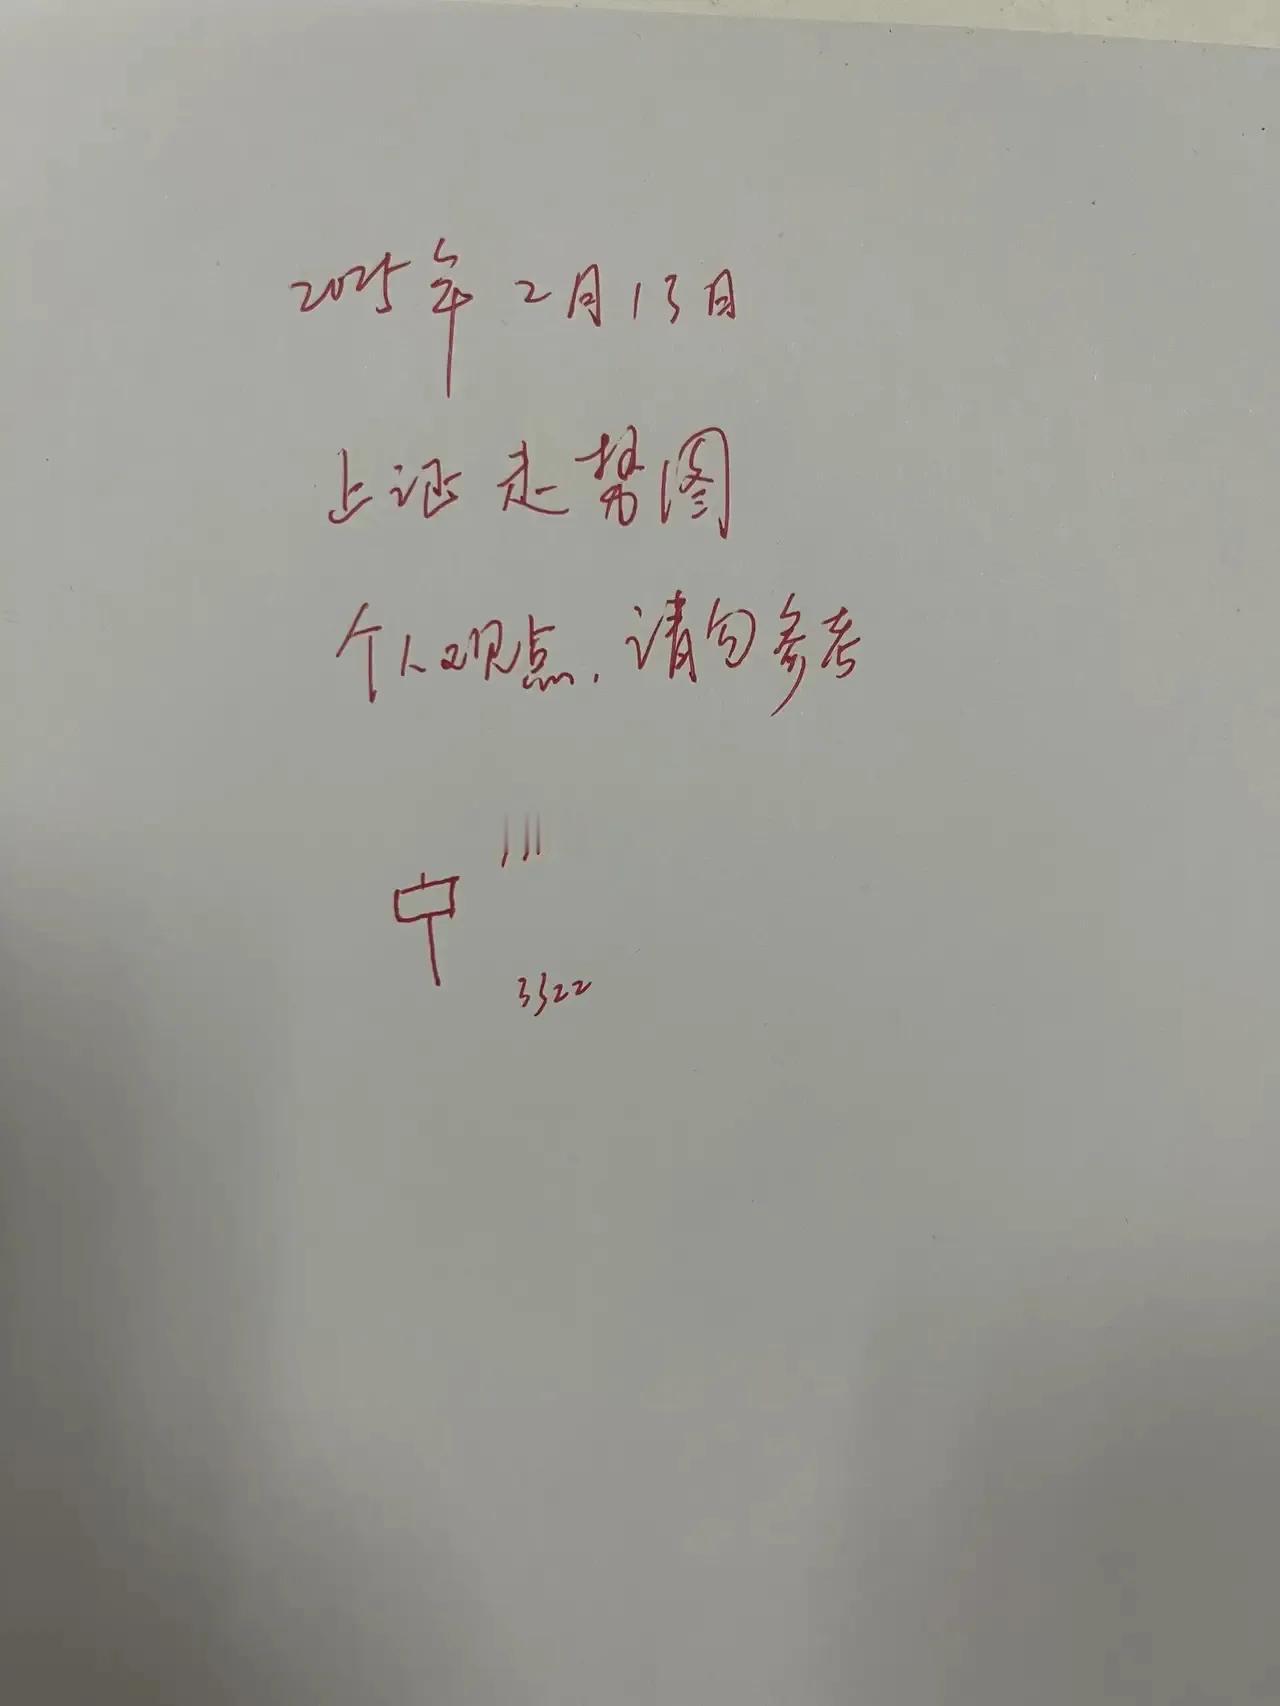 2025年2月13日
上证走势图
个人观点.请勿参考
3322